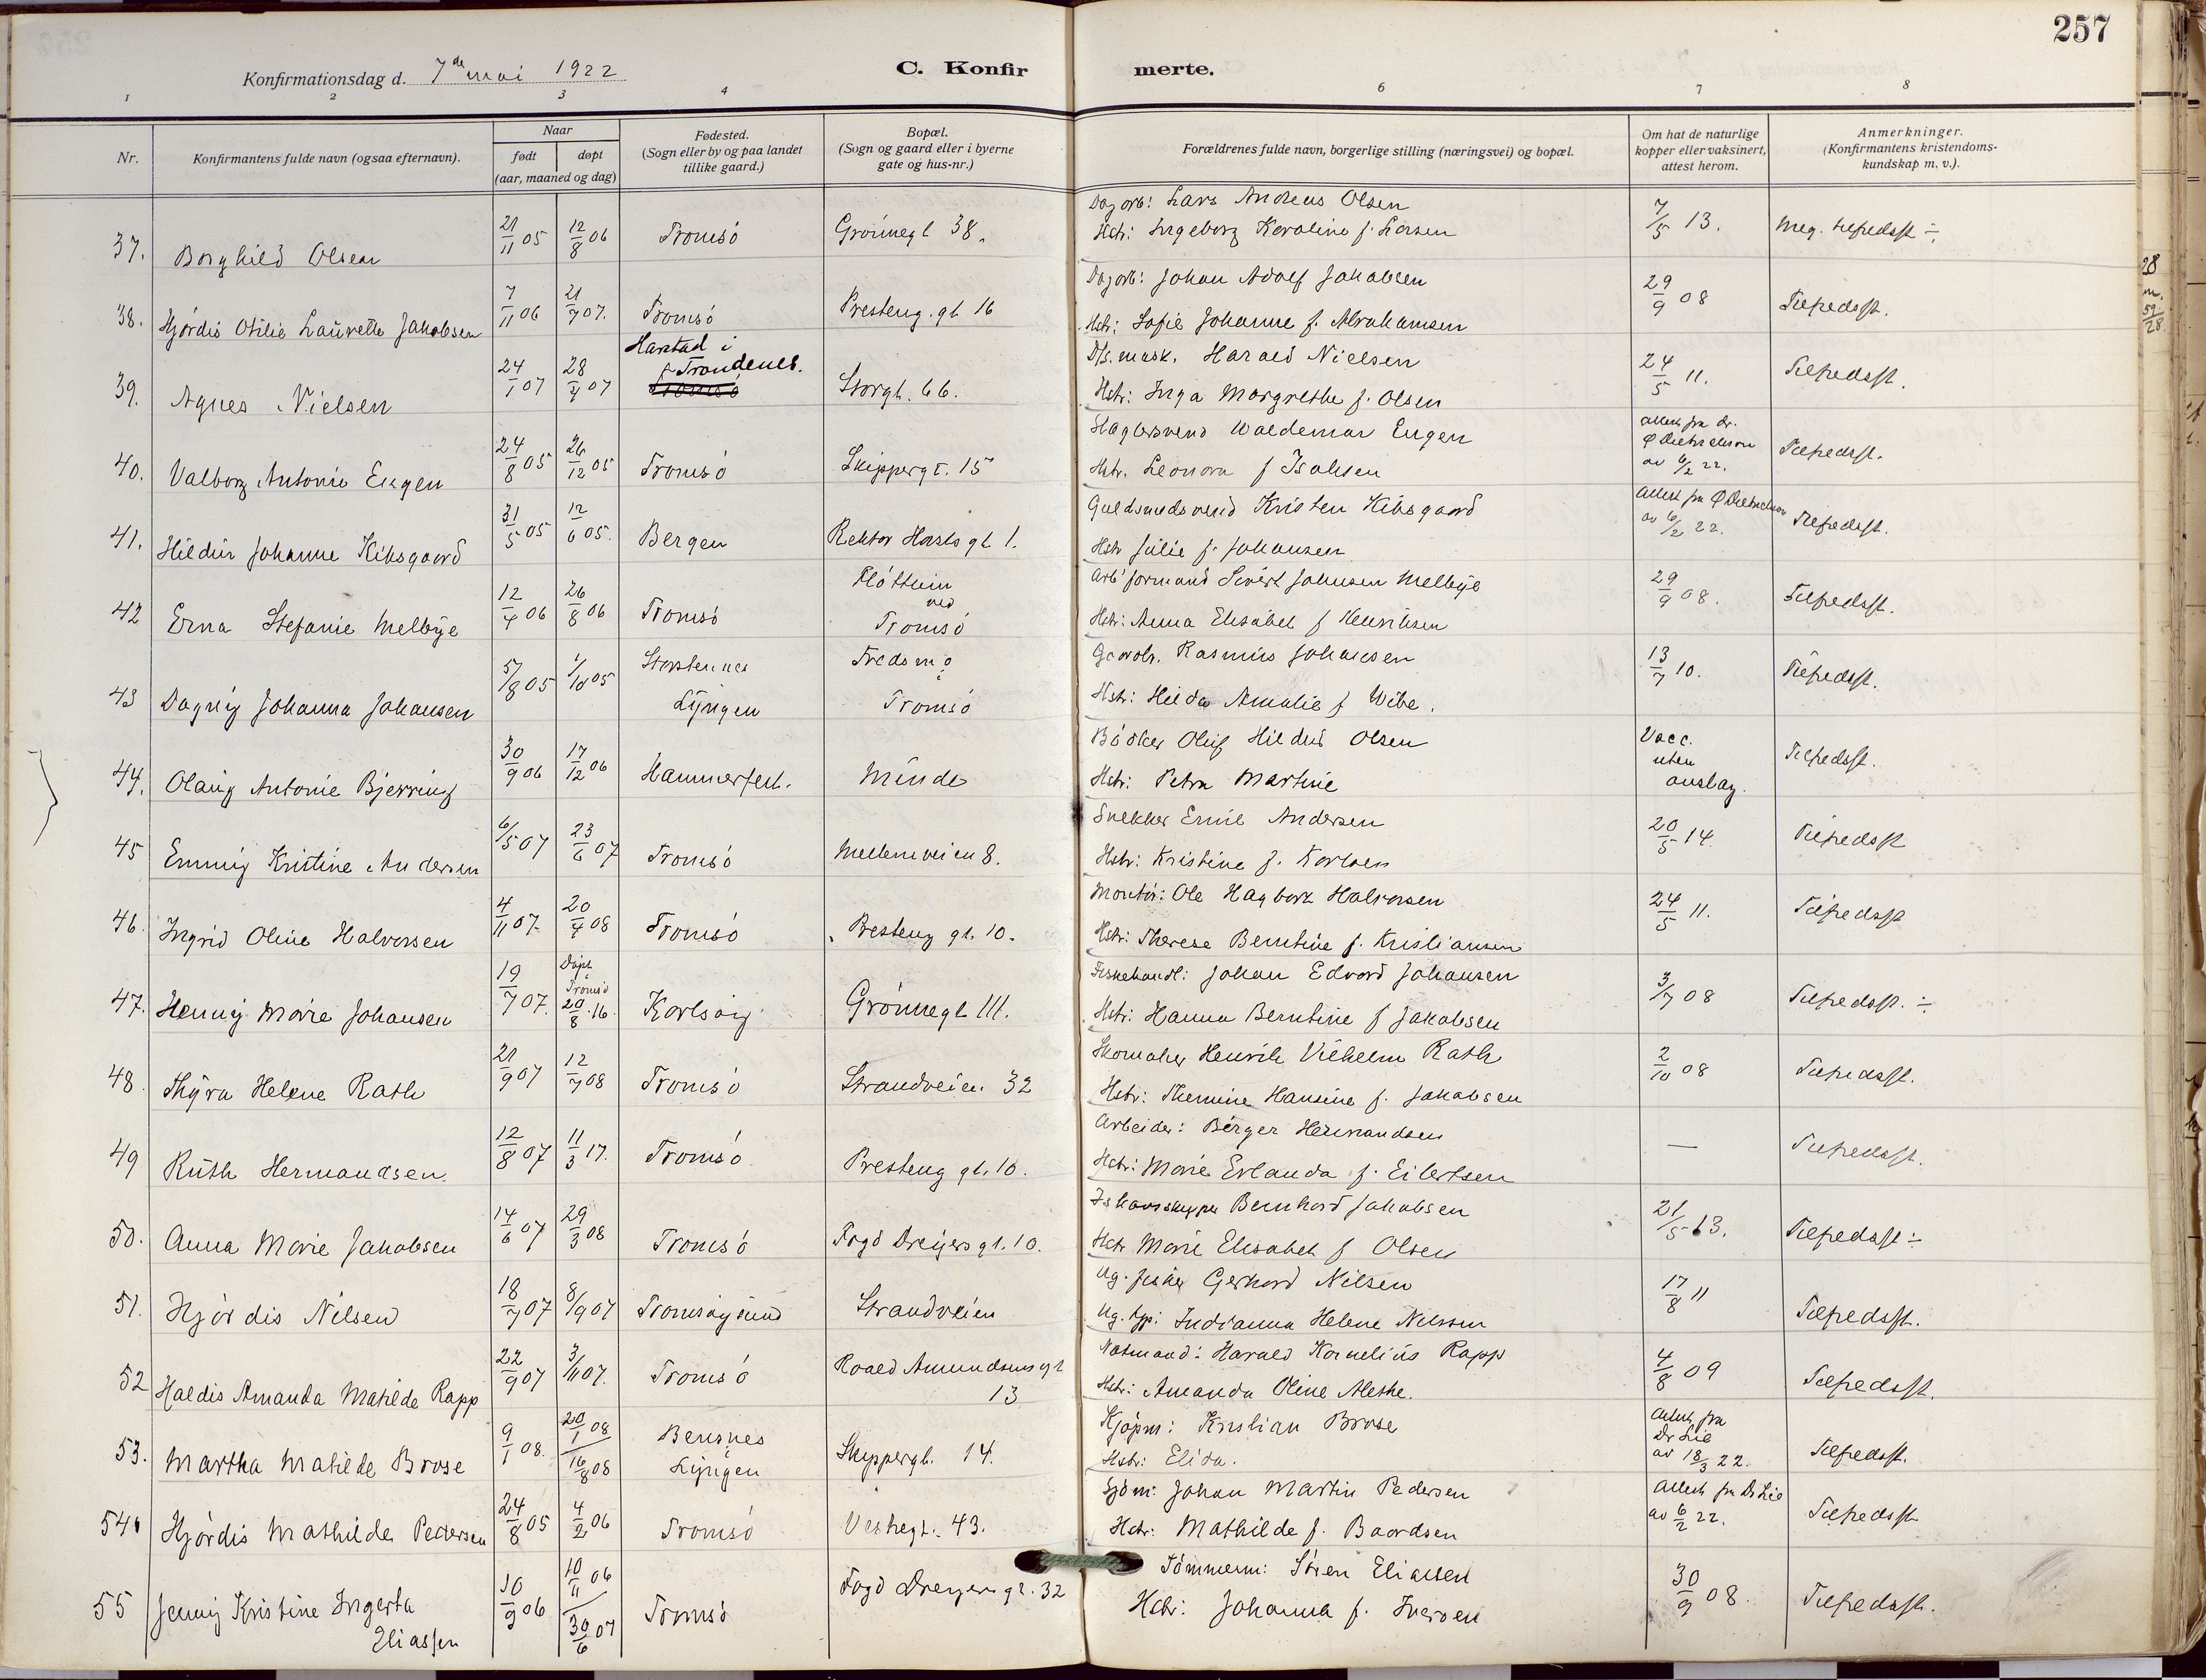 257
Konfirmationsdag d. 7de mai 1922
C. Konfirmerte.
1 2 3 4 6 7 8
Nr.
Konfirmantens fulde navn (ogsaa efternavn).
Naar
født døpt
(aar, maaned og dag)
Fødested.
(Sogn eller by og paa landet
tillike gaard.)
Bopæl.
(Sogn og gaard eller i byerne
gate og hus-nr.)
Forældrenes fulde navn, borgerlige stilling (næringsvei) og bopæl.
Om hat de naturlige
kopper eller vaksinert,
attest herom.
Anmerkninger.
(Konfirmantens kristendoms-
kundskap m. v.).
37. Borghild Olsen 21/11 05 12/8 06 Tromsö Grönnegt 38.
Dagarb: Lars Andreas Olsen
Hstr: Ingeborg Karoline f. Larsen
7/5 13. Meg. tilfredsst ÷
38. Hjördis Otilie Laurette Jakobsen 7/11 06 21/7 07. Tromsö Presteng. gt 16
Dagarb: Johan Adolf Jakobsen
Hstr: Sofie Johanne f. Abrahamsen
29/9 08 Tilfredsst.
39. Agnes Nielsen 24/1 07 28/4 07 Harstad i Trondenes. Storgt. 66.
D/s. mask. Harald Nielsen
Hstr: Inga Margrethe f. Olsen
24/5 11. Tilfredsst.
40. Valborg Antonie Eugen 24/8 05 26/12 05 Tromsö Skippergt. 15
Waldemar Eugen
Hstr. Leonora f Isaksen
attest fra dr.
av 6/2 22. Tilfredsst.
41. Hildur Johanne Kibsgaard 31/5 05 12/6 05. Bergen Rektor Horsts gt 1.
Guldsmedsvend Kristen Kibsgaard
Hstr Julie f. Johansen
Attest fra
av 6/2 22. Tilfredsst.
42 Erna Stefanie Melbye 12/4 06 26/8 06 Tromsö Flöttum ved Tromsö
Arb'formand Sivert Johnsen Melbye
Hstr: Anna Elisabet f Henriksen
29/9 08. Tilfredsst.
43 Dagny Johanna Johansen 5/8 05 1/10 05 Storstennes Lyngen Fredsmo i Tromsö
Gaardbr. Rasmus Johansen
Hstr: Hilda Amalie f Wibe.
13/7 10. Tilfredsst.
44. Olaug Antonie Bjerring 30/9 06 17/12 06 Hammerfest. Minde
Bödker Oluf Hildus Olsen
Hstr: Petra Martine
Vacc. uten anslag. Tilfredsst.
45 Emmy Kristine Andersen 6/5 07 23/6 07 Tromsö Mellemveien 8.
Snekker Emil Andersen
Hstr: Kristine f. Karlsen
20/5 14. Tilfredsst
46. Ingrid Oline Halvorsen 4/11 07. 20/4 08 Tromsö Presteng gt. 10.
Montör: Ole Hagbart Halvorsen
Hstr: Therese Berntine f. Kristiansen
24/5 11. Tilfredsst
47. Henny Marie Johansen 19/7 07. Döpt i Tromsö 20/8 16. Karlsöy Grönnegt 111.
Fiskehandl: Johan Edvard Johansen
Hstr: Hanna Berntine f Jakobsen
3/7 08 Tilfredsst. ÷
48. Thyra Helene Rath 21/9 07 12/7 08 Tromsö Strandveien 32
Skomaker Henrik Vilhelm Rath
Hstr: Themine Hansine f. Jakobsen
2/10 08 Tilfredsst.
49 Ruth Hermandsen. 12/8 07 11/3 17. Tromsö Presteng gt. 10.
Arbeider: Birger Hermandsen
Hstr: Marie Erlanda f. Eilertsen
— Tilfredsst.
50. Anna Marie Jakobsen 14/6 07 29/3 08 Tromsö Fogd Dreyers gt. 10.
Ishavsskipper Bernhard Jakobsen
Hstr Marie Elisabet f Olsen
21/5 13. Tilfredsst ÷
51. Hjördis Nilsen 18/7 07 8/9 07 Tromsöysund Strandveien
Ug. fisker Gerhard Nilsen
Ug. Indianna Helene Nilssen
17/8 11 Tilfredsst.
52 Haldis Amanda Matilde Rapp 22/9 07 3/11 07. Tromsö Roald Amundsens gt 13
Natmand: Harald Kornelius Rapp
Hstr: Amanda Oline Alethe.
4/8 09 Tilfredsst.
53. Martha Matilde Brose 9/1 08. 20/1 08 16/8 08 Bensnes i Lyngen Skippergt. 14.
Kjöpm: Kristian Brose
Hstr: Elida.
Attest fra Dr Lie av 18/3 22. Tilfredsst.
54. Hjördis Mathilde Pedersen 24/8 05 4/2 06 Tromsö Vestregt. 43.
Sjöm: Johan Martin Pedersen
Hstr: Mathilde f. Baardsen
Attest fra Dr Lie av 6/2 22. Tilfredsst
55 Jenny Kristine Ingerta Eliassen 10/9 06 10/11 06 30/6 07 Tromsö Fogd Dreyers gt. 32
Tömmerm: Sören Eliassen
Hstr: Johanna f. Iversen
30/9 08. Tilfredsst.